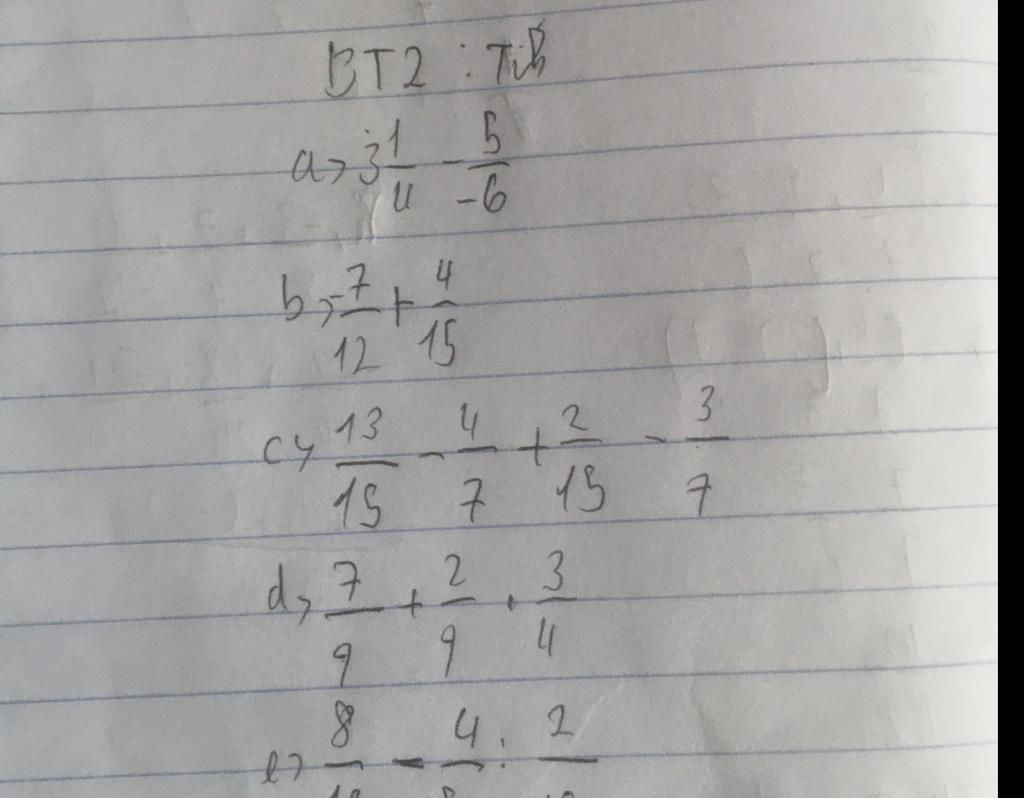 BT2 : Tính
a> 3 1/4 - 5/-6
b> -7/12 + 4/15
c> 13/15 - 4/7 + 2/15 - 3/7
d> 7/9 + 2/9 . 3/4
e> 8/ - 4/ : 2/